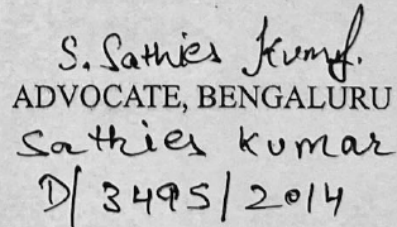 S. Sathies Kumar.
ADVOCATE, BENGALURU
Sathies Kumar
D/3495/2014